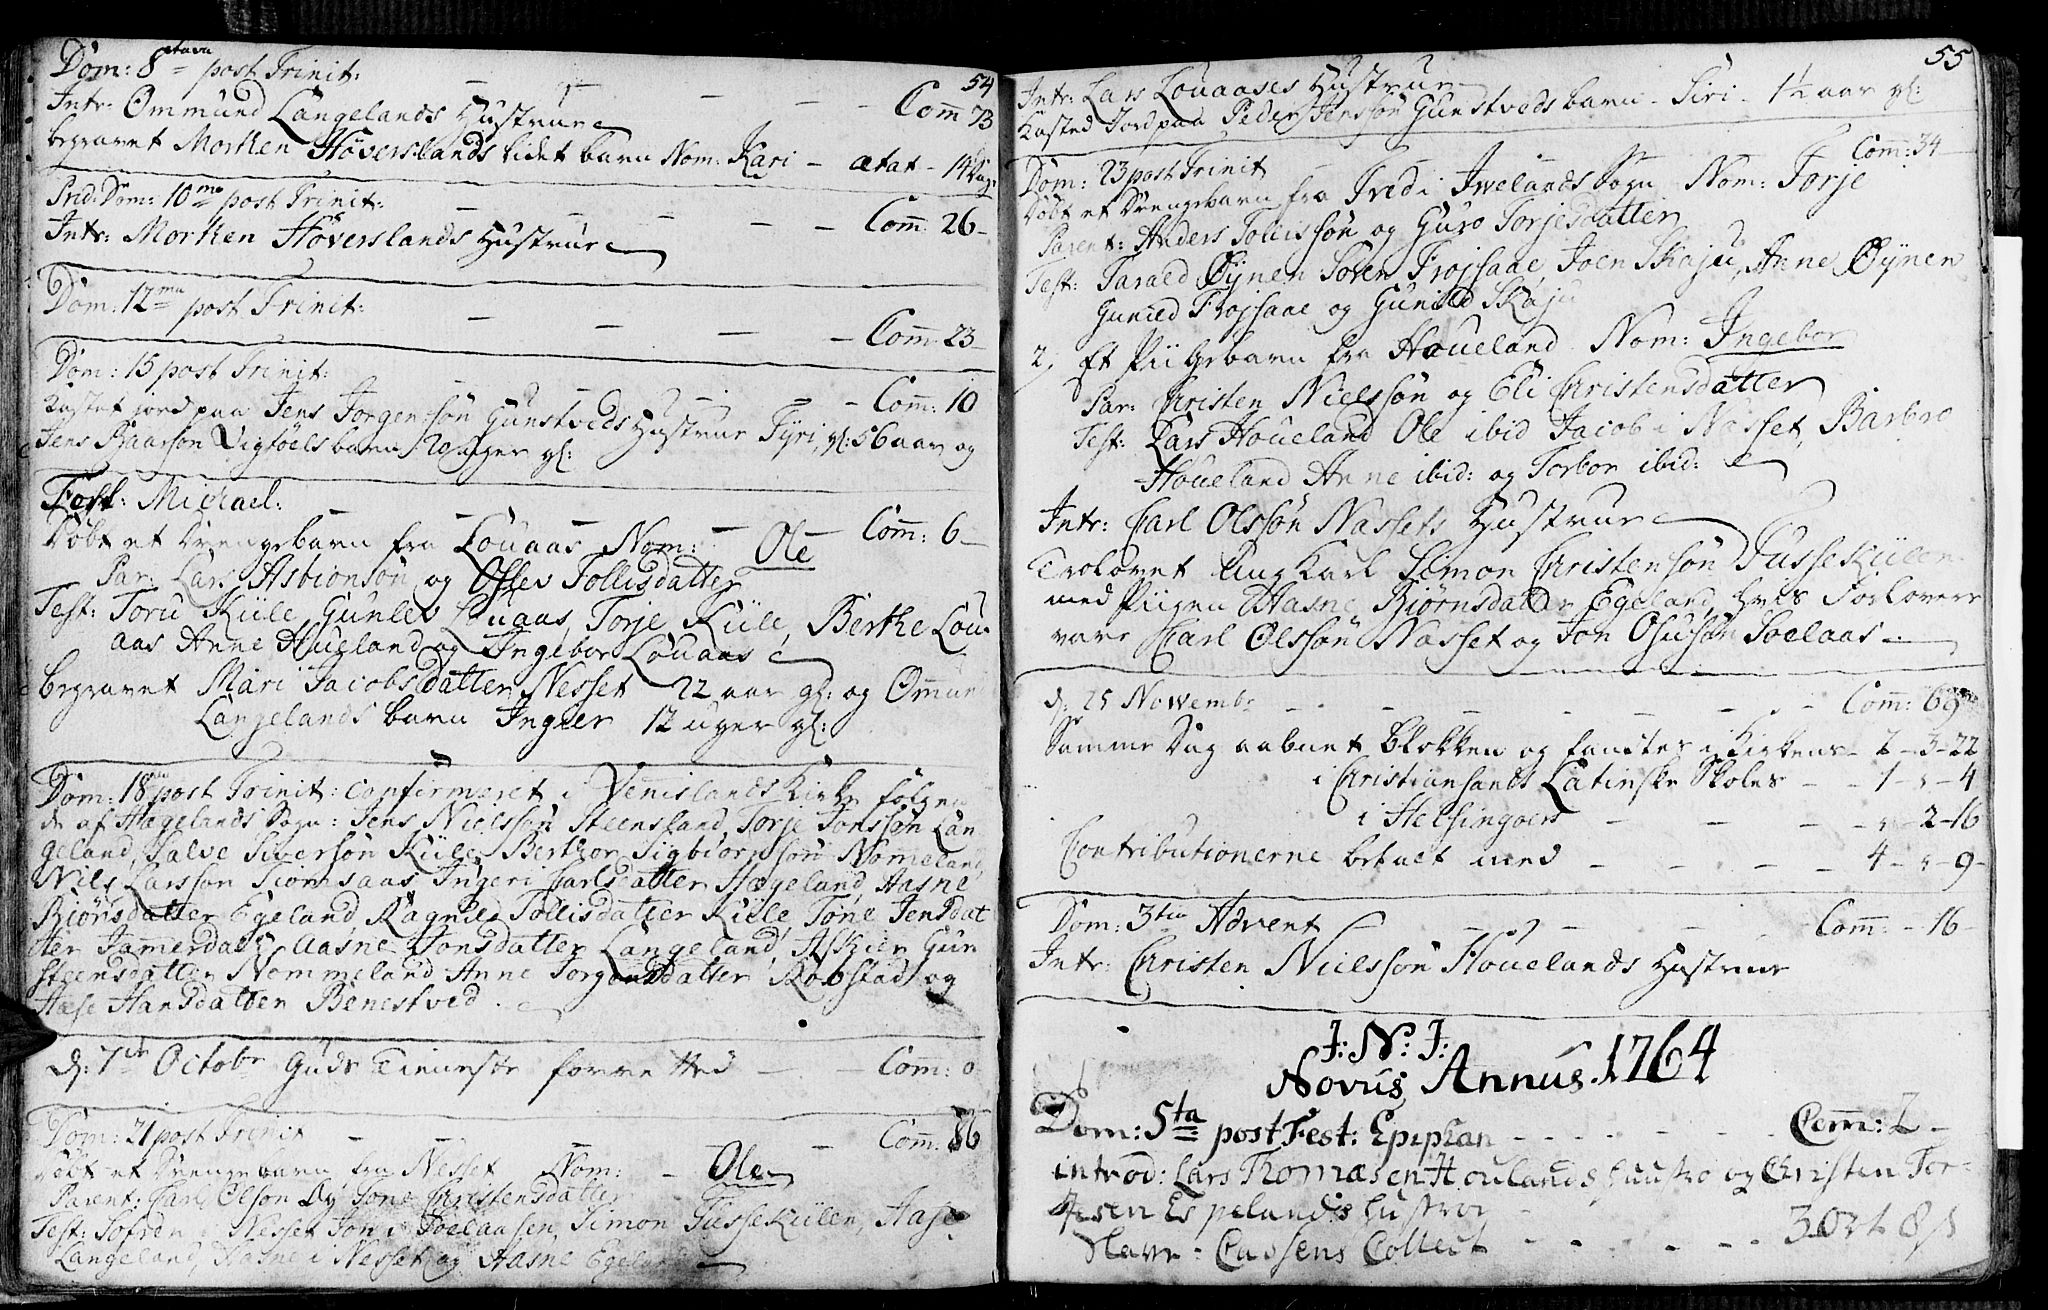 54
Dom: 8tava post Trinit:
Intr: Ommund Langelands Hustrue Com̄ 73
begravet Morken Höverslands lidet barn Nom: Kari - ætat - 14 Dage
Prid: Dom: 10ma post Trinit:
Intr: Morken Höverslands Hustrue Com̄: 26
Dom: 12ma post Trinit:
Com̄: 23
Dom: 15 post Trinit: Com̄: 10
Kastet jord paa Jens Jorgensön Gunstveds Hustrue Tyri, gl: 56 aar og
Jens Baarsön Vigföels barn 20 uger gl:
Fest: Michael: Com̄: 6
Döbt et Drengebarn fra Louaas Nom: Ole
Par: Lars Asbionsön og Oslev Tollisdatter
Test: Toru Kiile, Gunlev Louaas, Torje Kiile, Berthe Lou-
aas Anne Houeland og Ingebor Louaas
begravet Mari Jacobsdatter Nesset 22 aar gl: og Om̄und
Langelands barn Ingier 12 uger gl:
Dom: 18 post Trinit: confirmeret i Venislands Kirke fölgen
de af Hægelands Sogn: Jens Nielssön Steensland, Torje Jonssön Lan
geland, Salve Siversön Kiile, Berthor Sigbiornsön Nomeland,
Nils Larssön Tiomsaas, Ingeri Carlsdatter Hægeland, Aasne
Biörnsdatter Egeland, Ragnild Tollisdatter Kiile, Tone Jensdat
ter Jam̄erdal, Aasne Jonsdatter Langeland, Askier Gun
steensdatter Nommeland Anne Jorgensdatter Robstad og
Aase Hansdatter Benestved
d: 7de Octobr Guds Tieneste forretted Com̄: 0
Dom: 21 post Trinit Com̄: 86
Döbt et Drengebarn fra Nesset Nom: Ole
Parent: Carl Olson og Tone Christensdatter
Test: Tofren i Nesset Jon i Toelaasen, Simon Tussekiilen, Aase
Langeland, Aasne i Nesset og Aasne Egeland
55
Intr: Lars Louaases Hustrue
Kasted Jord paa Peder Jenssön Gunstveds barn - Siri - 1½ aar gl:
Dom: 23 post Trinit Com̄: 34
Döbt et Drengebarn fra Ivedi Iwelands Sogn Nom: Torje
Parent: Anders Tollissön og Guro Torjesdatter
Test: Tarald Öynen Soren Frojsaae, Joen Skaju, Anne Öynen
Gunild Frojsaae og Gunild Skaju
2, Et Piigebarn fra Houeland Nom: Ingebor
Par: Christen Nielssön og Eli Christensdatter
Test: Lars Houeland Ole ibid Jacob i Nasset, Barbro
Houeland Anne ibid: og Torbor ibid:
Intr: Carl Olssön Nassets Hustrue
Trolovet Ungkarl Simon Christensön Tussekiilen
med Piigen Aasne Biörnsdatter Egeland, hvis Forlovere
vare Carl Olssön Nasset og Jon Osusön Toelaas
d: 25 Nowembr Com̄: 69
Samme Dag aabnet Blokken og fandtes i Kirkens - 2 - 3 - 22
i Christiansands Latinske Skoles - 1 - „ - 4
i Helsingoers - „ - 2 - 16
Contributionerne betalt med - 4 - „ - 9
Dom: 3tia Advent Com̄: - 16 -
Intr: Christen Nielssön Houelands Hustrue
J: N: J:
Novus Annus. 1764
Dom: 5ta post Fest: Epiphan Com̄: 2
introd: Lars Thomæsen Houlands huustro og Christen Ter-
jesen Espelands Hustroe
Slave-Cassens Collect 3 ort 8 s